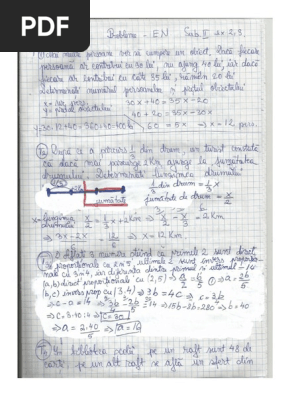 PDF
Probleme - EN Sub. II
Dacă mai multe persoane vor să cumpere un obiect, dacă fiecare
persoană ar contribui cu 30 lei, nu ajung 40 lei, iar dacă
fiecare ar contribui cu câte 35 lei, rămân 20 lei
Determinați numărul persoanelor și prețul obiectului
x = nr. pers. 30x + 40 = 35x - 20
y = prețul obiectului 40 + 20 = 35x - 30x
y = 30·12 + 40 = 360 + 40 = 400 lei 60 = 5x ⇒ x = 12 pers.
După ce a parcurs 1/3 din drum, un turist constată
că dacă mai parcurge 2 km ajunge la jumătatea
drumului. Determinați lungimea drumului
1/3 din drum = 1/3 x
jumătate de drum = x/2
jumătate
x = lungimea drumului x/2 = 1/3 x + 2 km ⇒ x/2 - x/3 = 2 km
⇒ 3x - 2x / 6 = 12/6 ⇒ x = 12 km
Aflați 3 numere știind că primele 2 sunt direct
proporționale cu 2 și 5, ultimele 2 sunt invers proporțio-
nale cu 3 și 4, iar diferența dintre primul și ultimul = 14
(a,b) direct proporționale cu (2,5) ⇒ a/2 = b/5 ⇒ a = 2b/5
(b,c) invers prop cu (3,4) ⇒ 3b = 4c ⇒ c = 3b/4
⇒ c - a = 14 ⇒ 3b/4 - 2b/5 = 14 ⇒ 15b - 8b = 280 ⇒ b = 40
⇒ c = 3·40:4 ⇒ c = 30
⇒ a = 2·40/5 ⇒ a = 16
biblioteca școlii pe un raft sunt 48 de
cărți pe un alt raft se află un sfert din